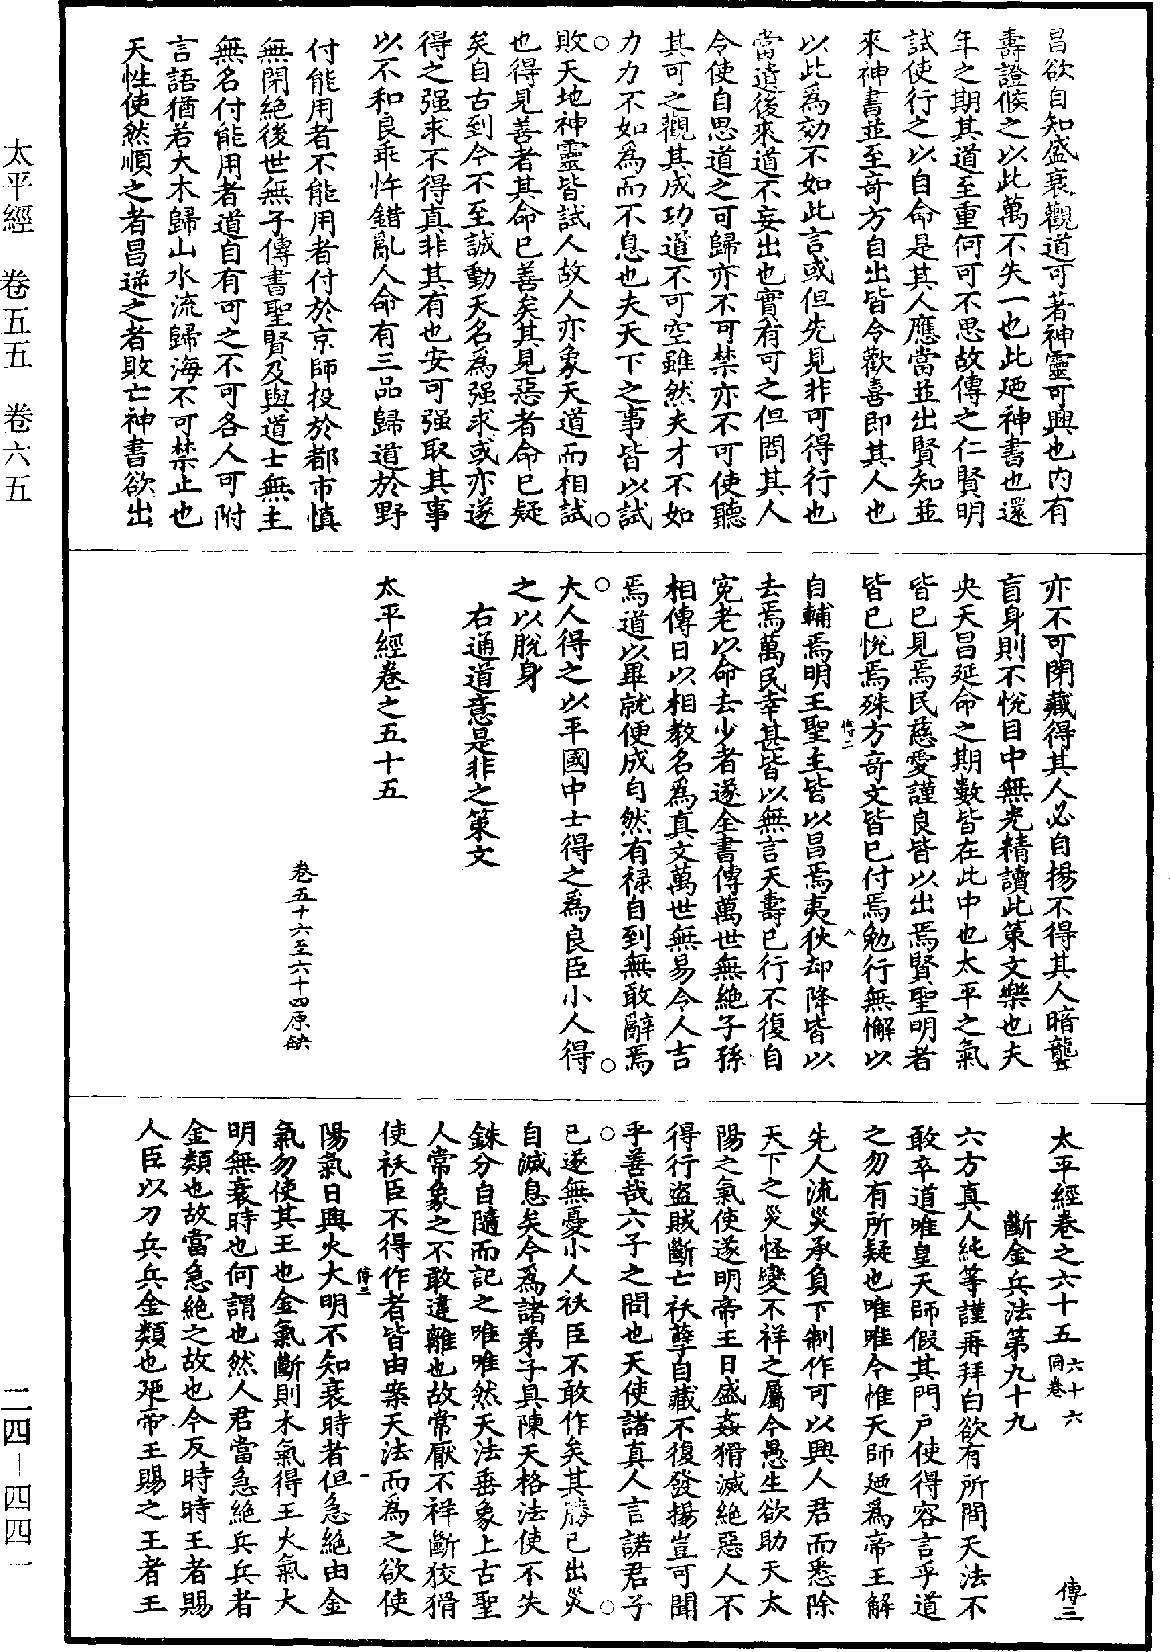 太平經　卷五五　卷六五
二四－四四一
昌欲自知盛衰觀道可著神靈可興也內有
壽證候之以此萬不失一也此廼神書也還
年之期其道至重何可不思故傳之仁賢明
試使行之以自命是其人應當並出賢知並
來神書並至奇方自出皆令歡喜即其人也
以此為効不如此言或但先見非可得行也
當遺後來道不妄出也實有可之但問其人
令使自思道之可歸亦不可禁亦不可使聽
其可之觀其成功道不可空雖然夫才不如
力力不如為而不息也夫天下之事皆以試
○敗天地神靈皆試人故人亦象天道而相試○
也得見善者其命已善矣其見惡者命已疑
矣自古到今不至誠動天名為强求或亦遂
得之强求不得真非其有也安可强取其事
以不和良乖忤錯亂人命有三品歸道於野
付能用者不能用者付於京師投於都市慎
無閉絕後世無子傳書聖賢及與道士無主
無名付能用者道自有可之不可各人可附
言語猶若大木歸山水流歸海不可禁止也
天性使然順之者昌逆之者敗亡神書欲出
亦不可閉藏得其人必自揚不得其人暗聾
盲身則不悅目中無光精讀此策文樂也夫
央天昌延命之期數皆在此中也太平之氣
皆已見焉民慈愛謹良皆以出焉賢聖明者
皆已悅焉殊方奇文皆已付焉勉行無懈以
傳二　八
自輔焉明王聖主皆以昌焉夷狄却降皆以
去焉萬民幸甚皆以無言天壽已行不復自
寃老以命去少者遂全書傳萬世無絕子孫
相傳日以相教名為真文萬世無易令人吉
焉道以畢就便成自然有祿自到無敢辭焉
○大人得之以平國中士得之為良臣小人得○
之以脫身
右通道意是非之策文
太平經卷之五十五
卷五十六至六十四原缺
太平經卷之六十五 六十六同卷　傳三
斷金兵法第九十九
六方真人純等謹再拜白欲有所問天法不
敢卒道唯皇天師假其門戶使得容言乎道
之勿有所疑也唯唯今惟天師廼為帝王解
先人流災承負下制作可以興人君而悉除
天下之災怪變不祥之屬今愚生欲助天太
陽之氣使遂明帝王日盛姦猾滅絕惡人不
得行盜賊斷亡祅孽自藏不復發揚豈可聞
乎善哉六子之問也天使諸真人言諾君子
○已遂無憂小人祅臣不敢作矣其勝已出災○
自滅息矣今為諸弟子具陳天格法使不失
銖分自隨而記之唯唯然天法垂象上古聖
人常象之不敢違離也故常厭不祥斷狡猾
使祅臣不得作者皆由案天法而為之欲使
傳三　一
陽氣日興火大明不知衰時者但急絕由金
氣勿使其王也金氣斷則木氣得王火氣大
明無衰時也何謂也然人君當急絕兵兵者
金類也故當急絕之故也今反時時王者賜
人臣以刀兵兵金類也廼帝王賜之王者王